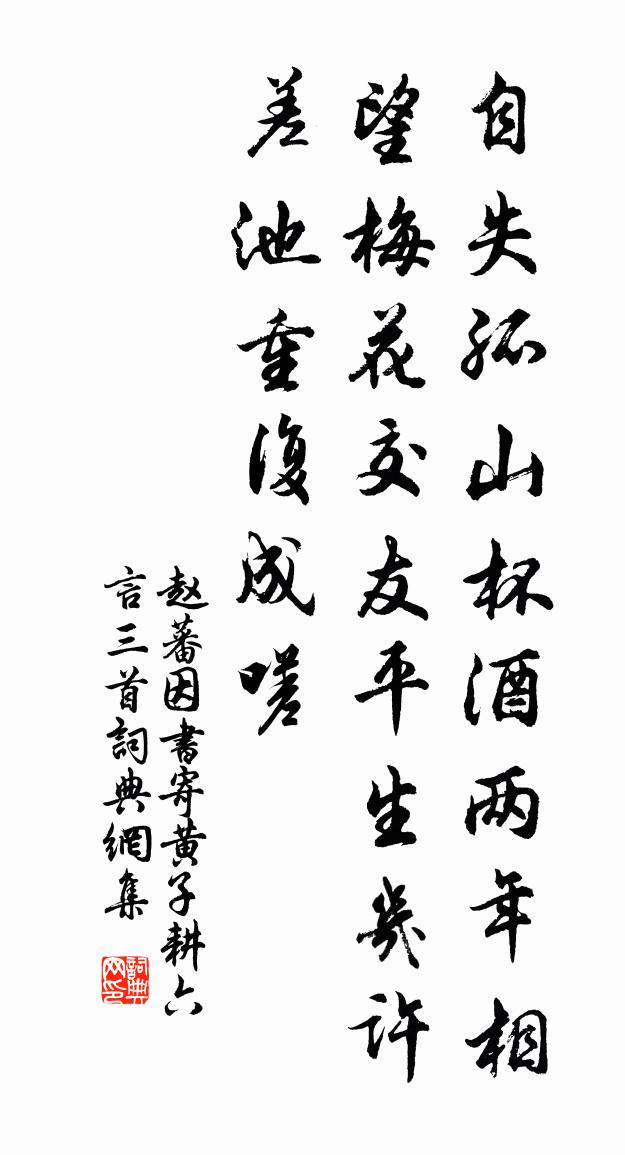 自失孤山杯酒两年相
望梅花交友平生幾许
差池重復成嗟
赵蕃因書寄黄子耕六
言三首詞典網集
詞典网印